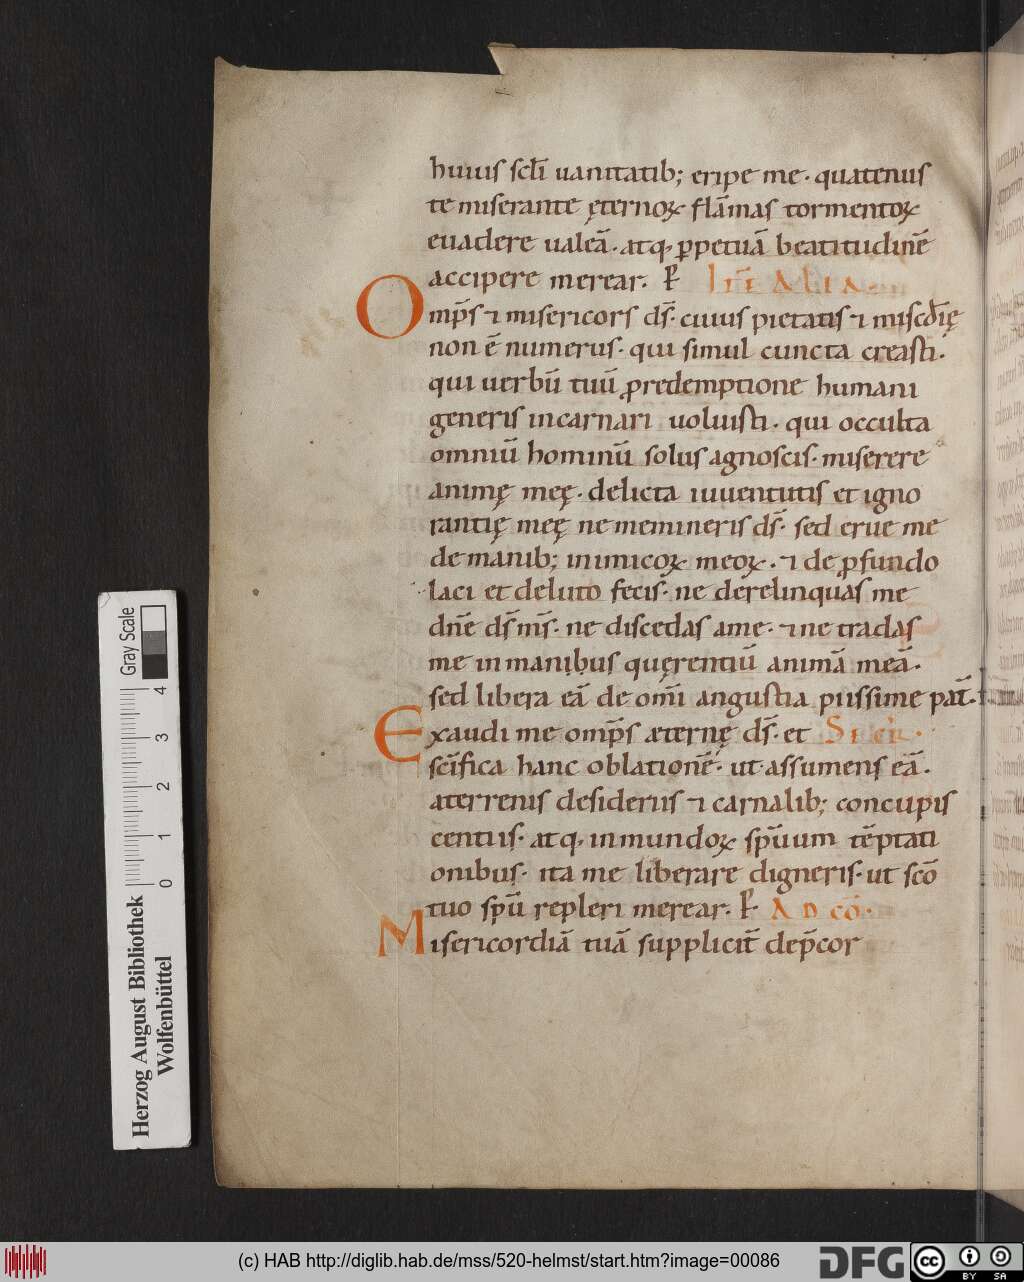 huius scłi uanitatib; eripe me· quatenus
te miserante ęternoꝝ flāmas tormentoꝝ
euadere ualeā· atq· ꝑpetuā beatitudinē
accipere merear· P̲ ITĒ ALIA·
Omp̄s ⁊ misericors ds̄· cuius pietatis ⁊ misc̄dię
non ē numerus· qui simul cuncta creasti·
qui uerbū tuū ꝓredemptione humani
generis incarnari uoluisti· qui occulta
omniū hominū solus agnoscis· miserere
animę meę· delicta iuuentutis et igno
rantię meę ne memineris ds̄· sed erue me
de manib; inimicoꝝ meoꝝ· ⁊ de ꝓfundo
laci et deluto fecis· ne derelinquas me
dn̄e ds̄ ms̄· ne discedas ame· ⁊ ne tradas
me in manibus quęrentiū animā meā·
sed libera eā de om̄i angustia piissime pat̄·
Exaudi me omp̄s æternę ds̄· et
sc̄ifica hanc oblationē· ut assumens eā·
aterrenis desideriis ⁊ carnalib; concupis
centiis· atq· inmundoꝝ sp̄uum tēptati
onibus· ita me liberare digneris· ut sc̄o
tuo sp̄u repleri merear· P̲ AD CŌ·
Misericordiā tuā supplicit̄ dep̄cor
Gray Scale
4 3 2 1 0
Herzog August Bibliothek
Wolfenbüttel
(c) HAB http://diglib.hab.de/mss/520-helmst/start.htm?image=00086
DFG
cc BY SA